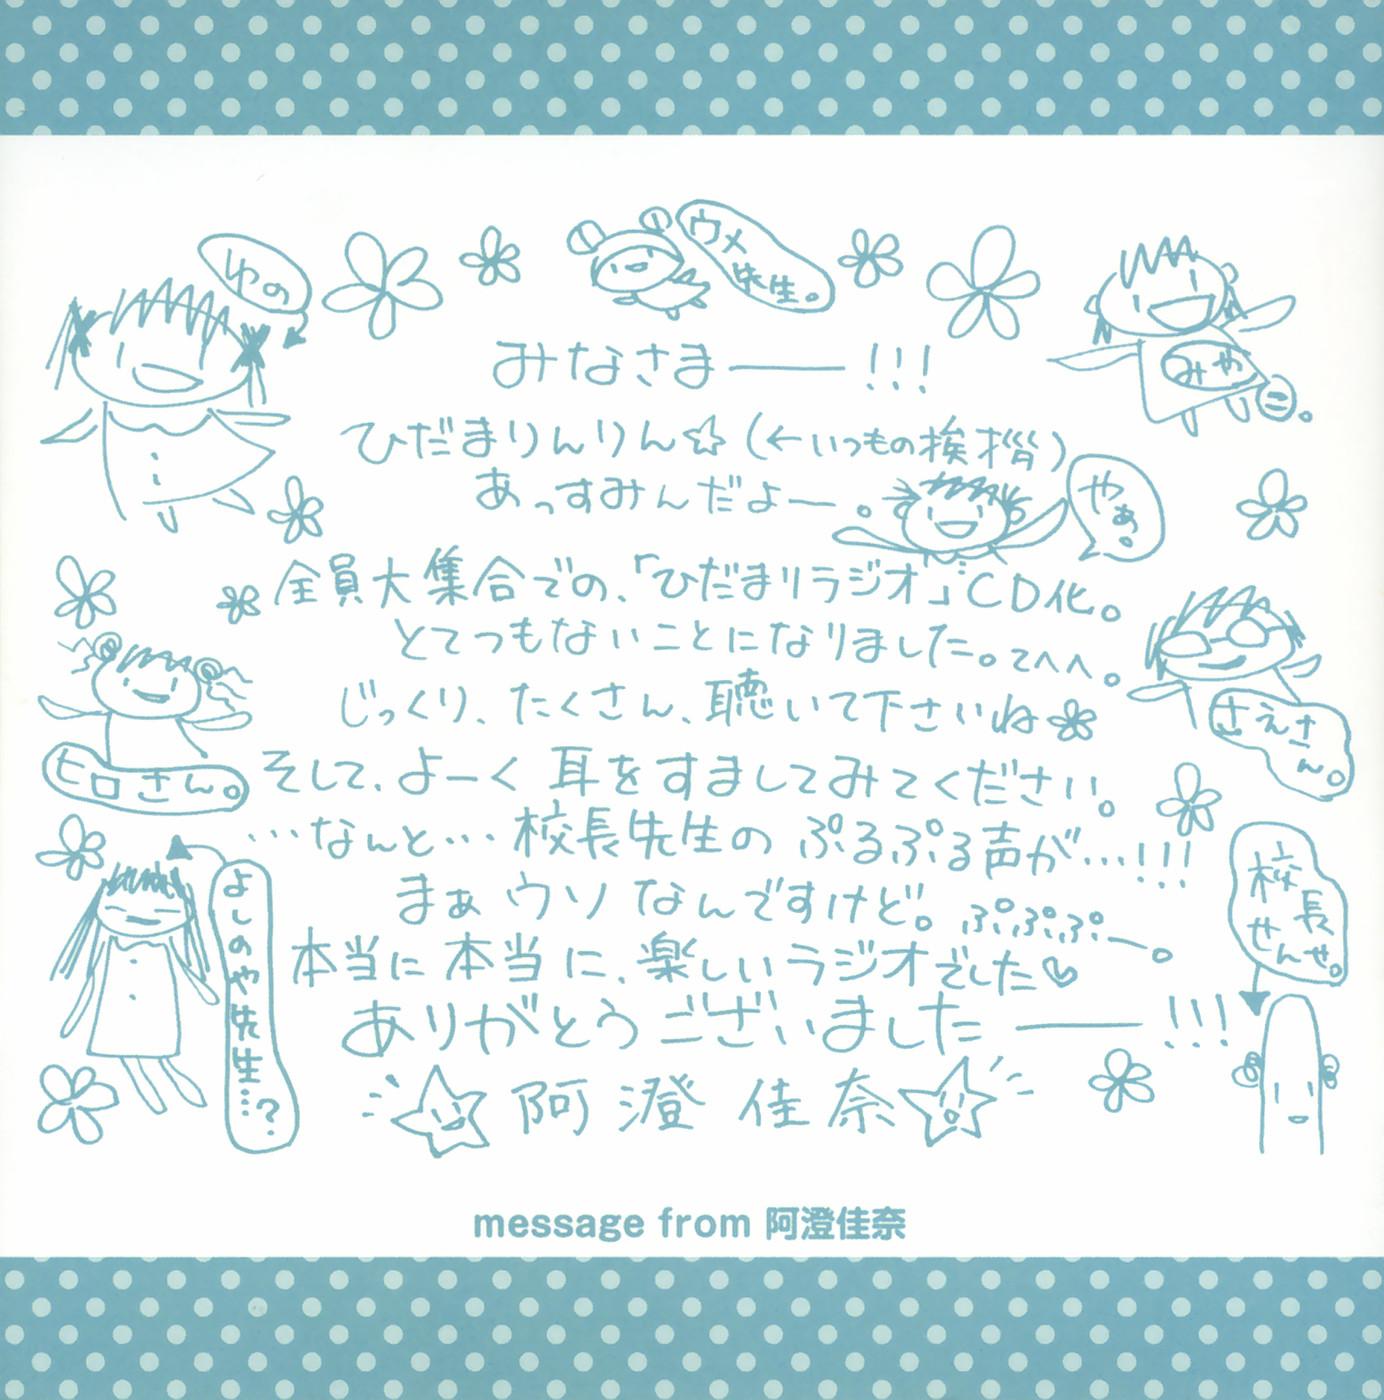 ゆの
ウメ
先生。
みや
こ。
みなさま――!!!
ひだまりんりん☆(←いつもの挨拶)
あっすみんだよー。
やぁ。
全員大集合での、「ひだまりラジオ」CD化。
とてつもないことになりました。てへへ。
さえさ
ん。
じっくり、たくさん、聴いて下さいね
ヒロさん。
そして、よーく耳をすましてみてください。
…なんと…校長先生のぷるぷる声が…!!!
まぁウソなんですけど。ぷぷぷー。
よしのや先生…?
校長
せんせ。
本当に本当に、楽しいラジオでした♡
ありがとうございました――!!!
阿澄佳奈
message from 阿澄佳奈